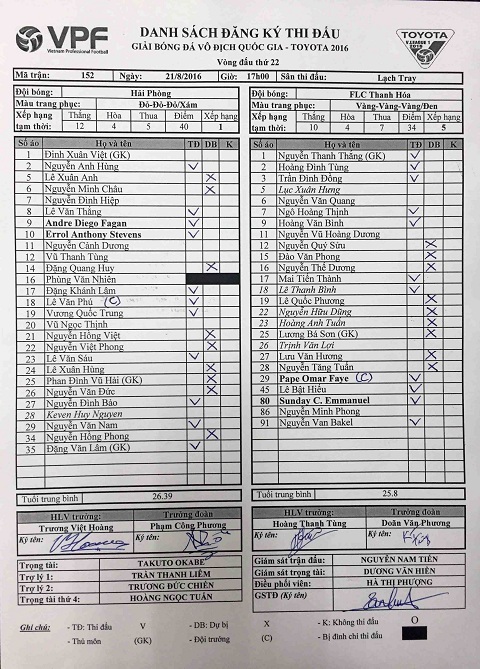 VPF
Vietnam Professional Football
DANH SÁCH ĐĂNG KÝ THI ĐẤU
GIẢI BÓNG ĐÁ VÔ ĐỊCH QUỐC GIA - TOYOTA 2016
Vòng đấu thứ 22
TOYOTA
V.LEAGUE 1
2016
Mã trận: 152 Ngày: 21/8/2016 Giờ: 17h00 Sân thi đấu: Lạch Tray
Đội bóng: Hải Phòng
Màu trang phục: Đỏ-Đỏ-Đỏ/Xám
Xếp hạng tạm thời: Thắng Hòa Thua Điểm Xếp hạng
12 4 5 40 1
Số áo Họ và tên TĐ DB K
1 Đinh Xuân Việt (GK)
2 Nguyễn Anh Hùng V
5 Lê Xuân Anh X
6 Nguyễn Minh Châu X
7 Nguyễn Đình Hiệp
8 Lê Văn Thắng V
9 Andre Diego Fagan V
10 Errol Anthony Stevens V
11 Nguyễn Cảnh Dương
12 Vũ Thanh Tùng
14 Đặng Quang Huy X
16 Phùng Văn Nhiên
17 Đặng Khánh Lâm V
18 Lê Văn Phú (C) V
19 Vương Quốc Trung V
20 Vũ Ngọc Thịnh
21 Nguyễn Hồng Việt X
22 Nguyễn Việt Phong X
23 Lê Văn Sáu V
24 Lê Xuân Hùng X
25 Phan Đình Vũ Hải (GK) X
26 Nguyễn Văn Đức X
27 Nguyễn Đình Bảo V
28 Keven Huy Nguyen
29 Nguyễn Văn Nam V
34 Nguyễn Hồng Phong X
35 Đặng Văn Lâm (GK) V
Tuổi trung bình 26.39
Đội bóng: FLC Thanh Hóa
Màu trang phục: Vàng-Vàng-Vàng/Đen
Xếp hạng tạm thời: Thắng Hòa Thua Điểm Xếp hạng
10 4 7 34 5
Số áo Họ và tên TĐ DB K
1 Nguyễn Thanh Thắng (GK) V
2 Hoàng Đình Tùng V
3 Trần Đình Đồng V
5 Lục Xuân Hưng
6 Nguyễn Văn Quang
7 Ngô Hoàng Thịnh V
9 Hoàng Văn Bình V
11 Nguyễn Vũ Hoàng Dương
12 Nguyễn Quý Sửu X
15 Đào Văn Phong X
16 Nguyễn Thế Dương X
17 Mai Tiến Thành V
18 Lê Thanh Bình V
19 Lê Quốc Phương X
22 Nguyễn Hữu Dũng X
23 Hoàng Anh Tuấn X
25 Lương Bá Sơn (GK) X
26 Trịnh Văn Lợi
27 Lưu Văn Hương X
28 Nguyễn Tăng Tuấn X
29 Pape Omar Faye (C) V
45 Lê Bật Hiếu V
80 Sunday C. Emmanuel V
86 Nguyễn Minh Phong
91 Nguyễn Van Bakel V
Tuổi trung bình 25.8
HLV trưởng: Trưởng đoàn
Trương Việt Hoàng Phạm Công Phương
Ký tên: Ký tên:
HLV trưởng: Trưởng đoàn
Hoàng Thanh Tùng Doãn Văn Phương
Ký tên: Ký tên:
Trọng tài: TAKUTO OKABE
Trợ lý 1: TRẦN THANH LIÊM
Trợ lý 2: TRƯƠNG ĐỨC CHIẾN
Trọng tài thứ 4: HOÀNG NGỌC TUẤN
Giám sát trận đấu: NGUYỄN NAM TIẾN
Giám sát trọng tài: DƯƠNG VĂN HIỀN
Điều phối viên: HÀ THỊ PHƯỢNG
GSTĐ (Ký)
Ghi chú: - TĐ: Thi đấu V - DB: Dự bị X - K: Không thi đấu O
- Thủ môn (GK) - Đội trưởng (C) - Bị đình chỉ thi đấu